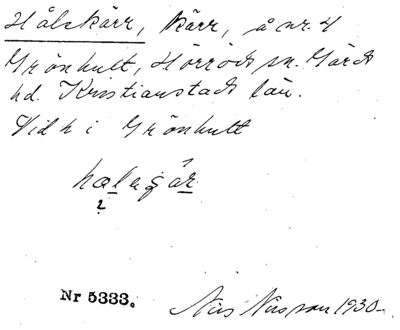 Hålekärr, kärr, å nr. 4
Grönhult, Hörröds sn. Gärds
hd. Kristianstads län.
Vid h i Grönhult
Nr 5333.
Nils Nilsson 1930.